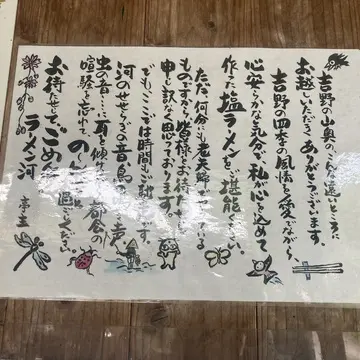 吉野の山奥のこんな遠いところに
お越しいただきありがとうございます。
吉野の四季の風情を愛でながら、
心安らかな気分で、私が心を込めて
作った塩ラーメンをご堪能ください。
ただ、何分にも老夫婦
ものですから皆様をお待たせして
申し訳なく思っております。
でも、ここでは時間もご馳走です。
河のせせらぎの音、鳥
虫の音…に耳を傾け 都会の
喧騒を忘れて、
の〜んびり 過ごください。
お待たせしてごめん
ラーメン河 亭主